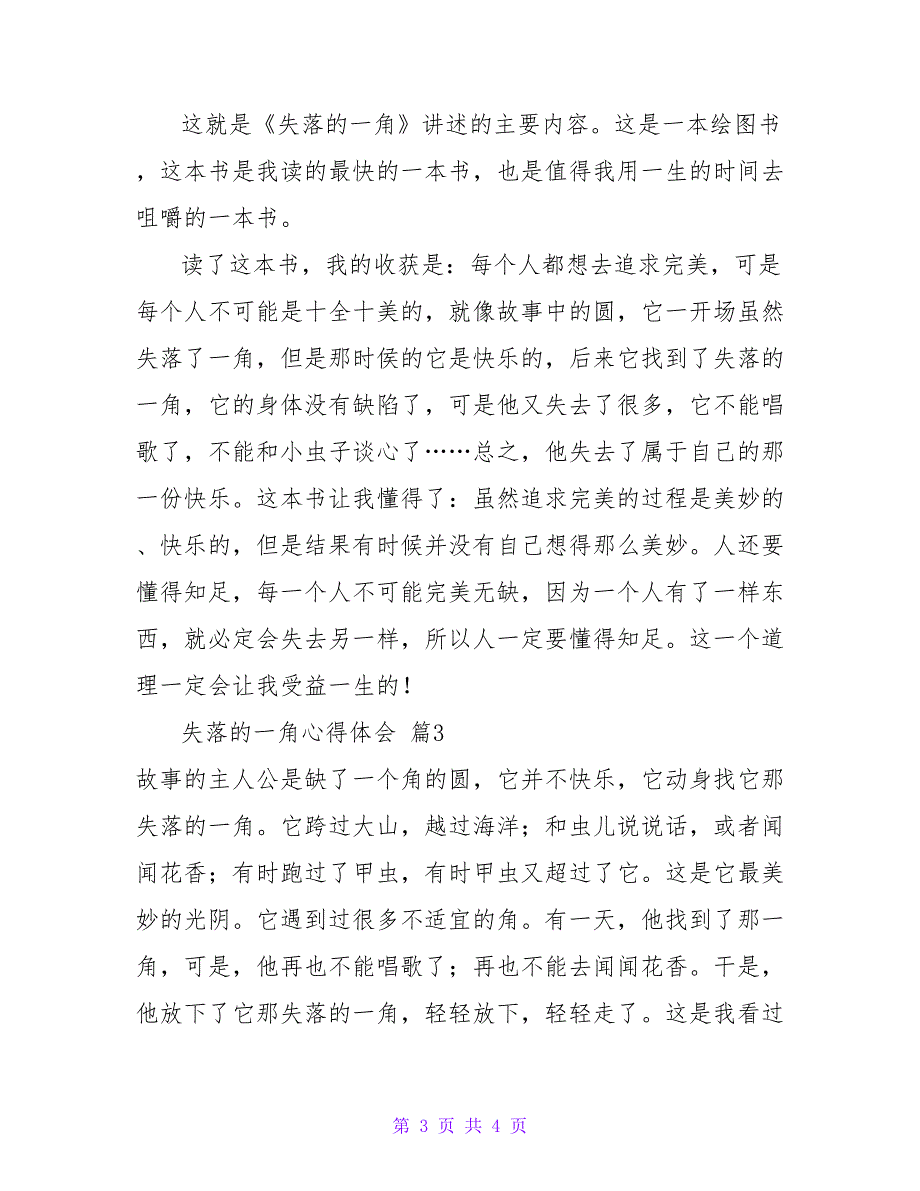 这就是《失落的一角》讲述的主要内容。这是一本绘图书
，这本书是我读的最快的一本书，也是值得我用一生的时间去
咀嚼的一本书。
读了这本书，我的收获是：每个人都想去追求完美，可是
每个人不可能是十全十美的，就像故事中的圆，它一开场虽然
失落了一角，但是那时侯的它是快乐的，后来它找到了失落的
一角，它的身体没有缺陷了，可是他又失去了很多，它不能唱
歌了，不能和小虫子谈心了……总之，他失去了属于自己的那
一份快乐。这本书让我懂得了：虽然追求完美的过程是美妙的
、快乐的，但是结果有时候并没有自己想得那么美妙。人还要
懂得知足，每一个人不可能完美无缺，因为一个人有了一样东
西，就必定会失去另一样，所以人一定要懂得知足。这一个道
理一定会让我受益一生的！
失落的一角心得体会 篇3
故事的主人公是缺了一个角的圆，它并不快乐，它动身找它那
失落的一角。它跨过大山，越过海洋；和虫儿说说话，或者闻
闻花香；有时跑过了甲虫，有时甲虫又超过了它。这是它最美
妙的光阴。它遇到过很多不适宜的角。有一天，他找到了那一
角，可是，他再也不能唱歌了；再也不能去闻闻花香。干是，
他放下了它那失落的一角，轻轻放下，轻轻走了。这是我看过
第 3 页 共 4 页